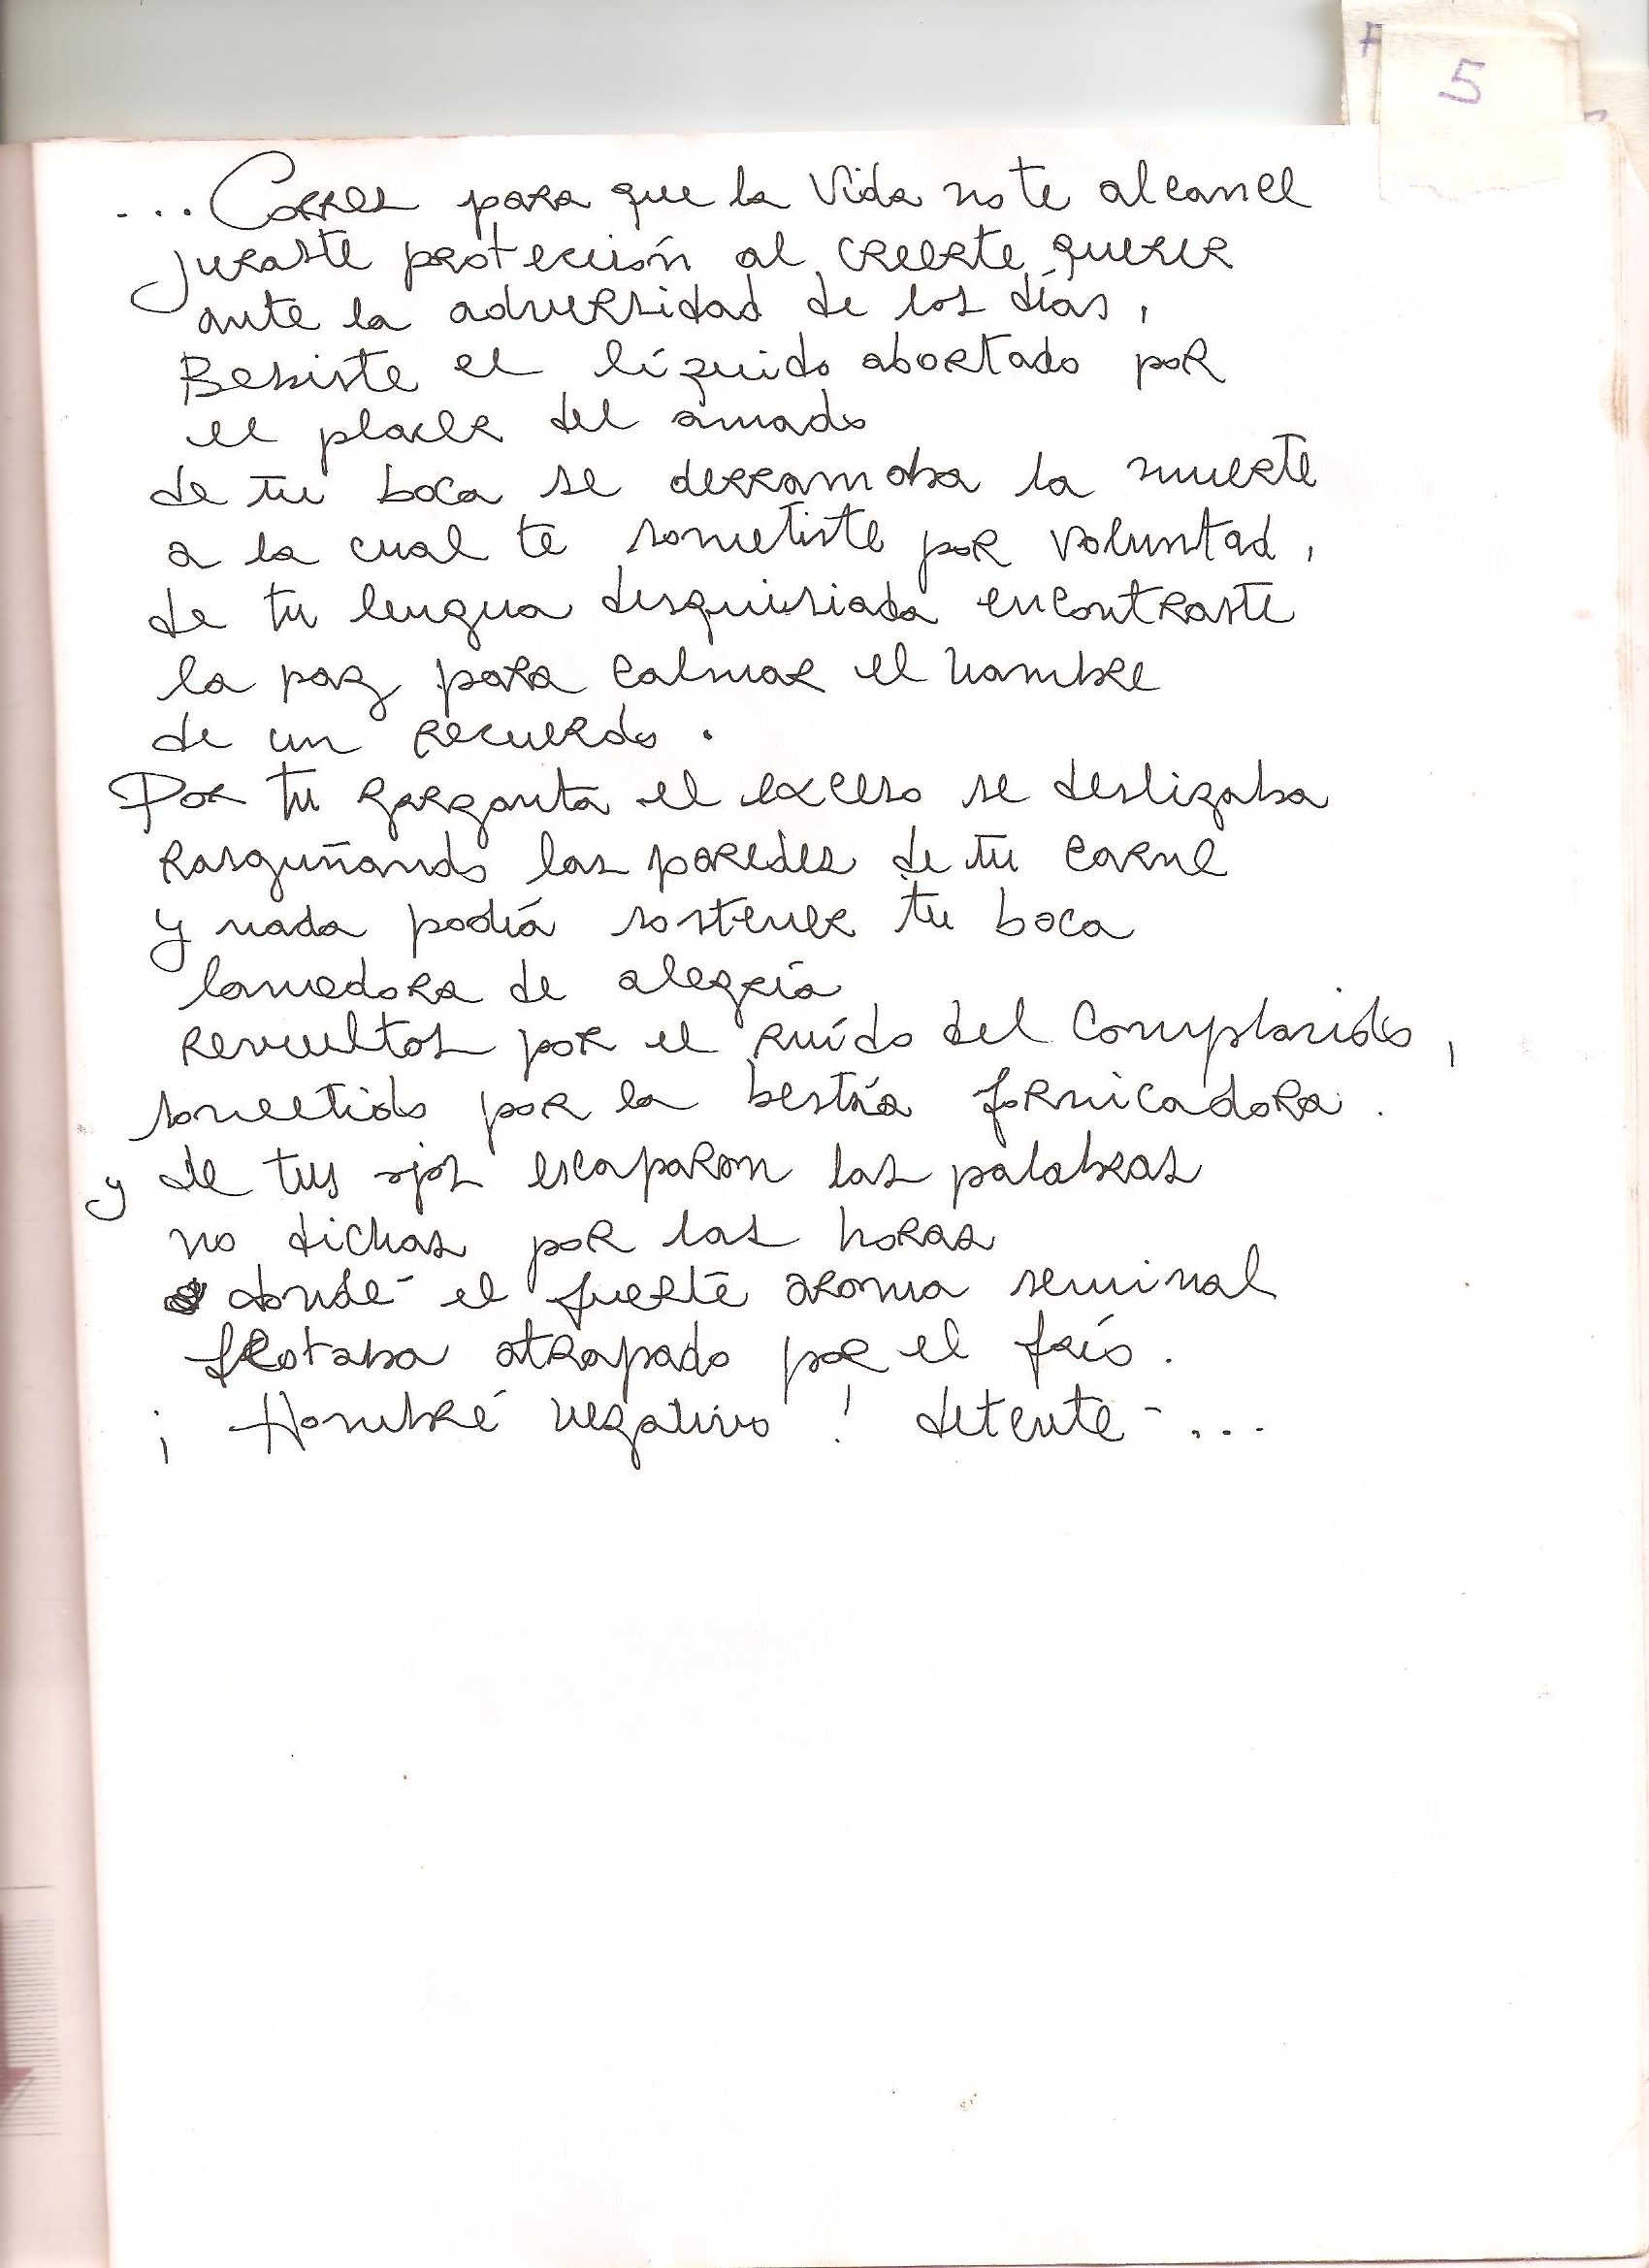 5
... Corres para que la Vida no te alcance
juraste protección al creerte querer
ante la adversidad de los días,
Bebiste el líquido abortado por
el placer del amado
de tu boca se derramaba la muerte
a la cual te sometiste por voluntad,
de tu lengua desquisiada encontraste
la paz para calmar el hambre
de un recuerdo.
Por tu garganta el exceso se deslizaba
rasguñando las paredes de tu carne
y nada podía sostener tu boca
lamedora de alegría
revueltos por el ruído del complacido,
sometido por la bestia fornicadora.
y de tus ojos escaparon las palabras
no dichas por las horas
donde el fuerte aroma seminal
flotaba atrapado por el frío.
¡Hombre negativo! detente...